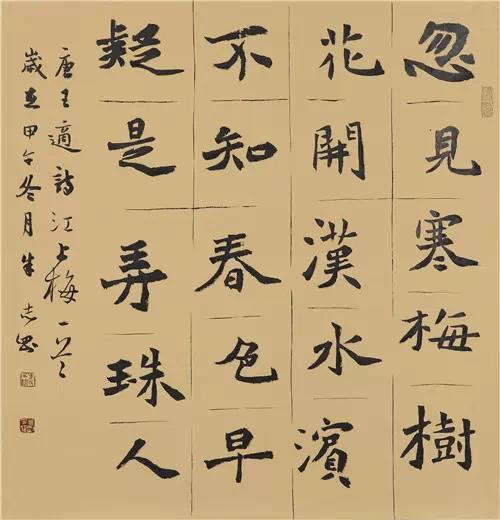 忽見寒梅樹
花開漢水濱
不知春色早
疑是弄珠人
唐王適詩江上梅一首
歲在甲午冬月朱志剛